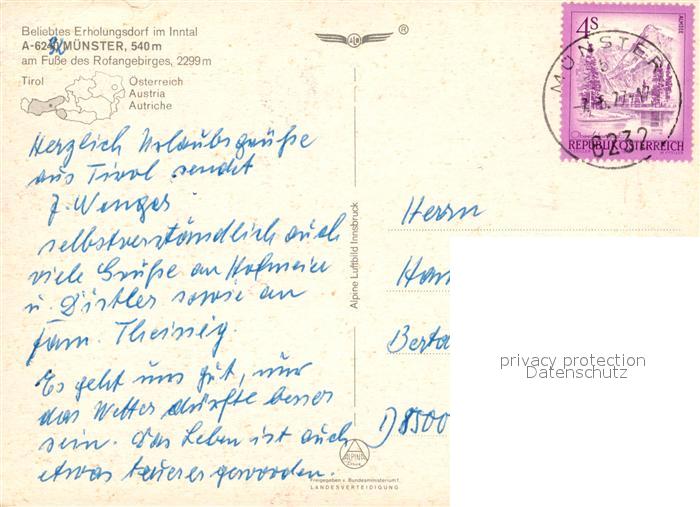 Beliebtes Erholungsdorf im Inntal
A-6232 MÜNSTER, 540 m
am Fuße des Rofangebirges, 2299 m
Tirol
Österreich
Austria
Autriche
Herzlich Urlaubsgrüße
aus Tirol sendet
J. Wenger
selbstverständlich auch
viele Grüße an Hofmeier
u. Distler sowie an
Fam. Theinig.
Es geht uns gut, nur
das Wetter dürfte besser
sein. Das Leben ist auch
etwas teuerer geworden.
Alpine Luftbild Innsbruck
®
4 S
ALMSEE
REPUBLIK ÖSTERREICH
MÜNSTER
6232
Herrn
Han
Berta
D 8500
privacy protection
Datenschutz
ALPINA
Freigegeben v. Bundesministerium f.
LANDESVERTEIDIGUNG